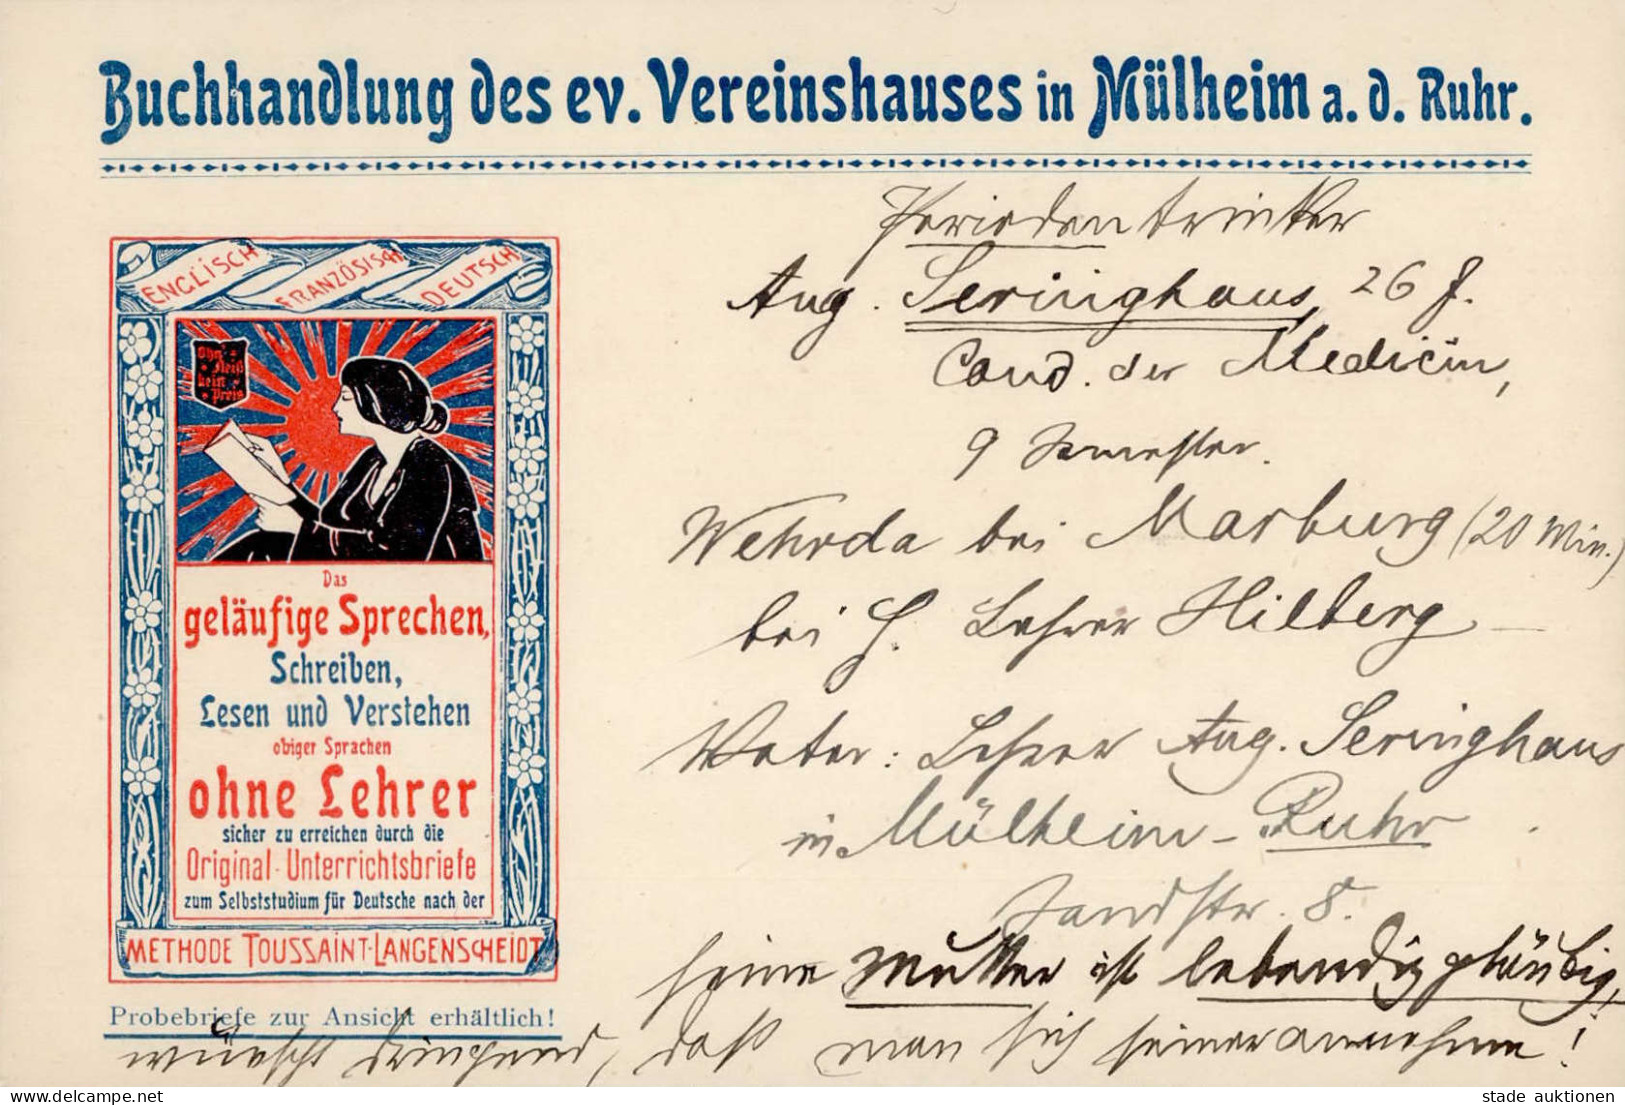 Buchhandlung des ev. Vereinshauses in Mülheim a. d. Ruhr.
Periodentrinker
Aug. Seringhaus, 26 J.
Cand. der Medicin,
9 Semester.
Wehrda bei Marburg (20 Min.)
bei H. Lehrer Hilberg
Vater: Lehrer Aug. Seringhaus
in Mülheim-Ruhr
Sandstr. 8.
seine Mutter ist lebendig gläubig,
wünscht dringend, daß man sich seiner annehme!
ENGLISCH
FRANZÖSISCH
DEUTSCH
Ohn'
Fleiß
kein
Preis
Das
geläufige Sprechen,
Schreiben,
Lesen und Verstehen
obiger Sprachen
ohne Lehrer
sicher zu erreichen durch die
Original-Unterrichtsbriefe
zum Selbststudium für Deutsche nach der
METHODE TOUSSAINT-LANGENSCHEIDT
Probebriefe zur Ansicht erhältlich!
www.delcampe.net
stade auktionen